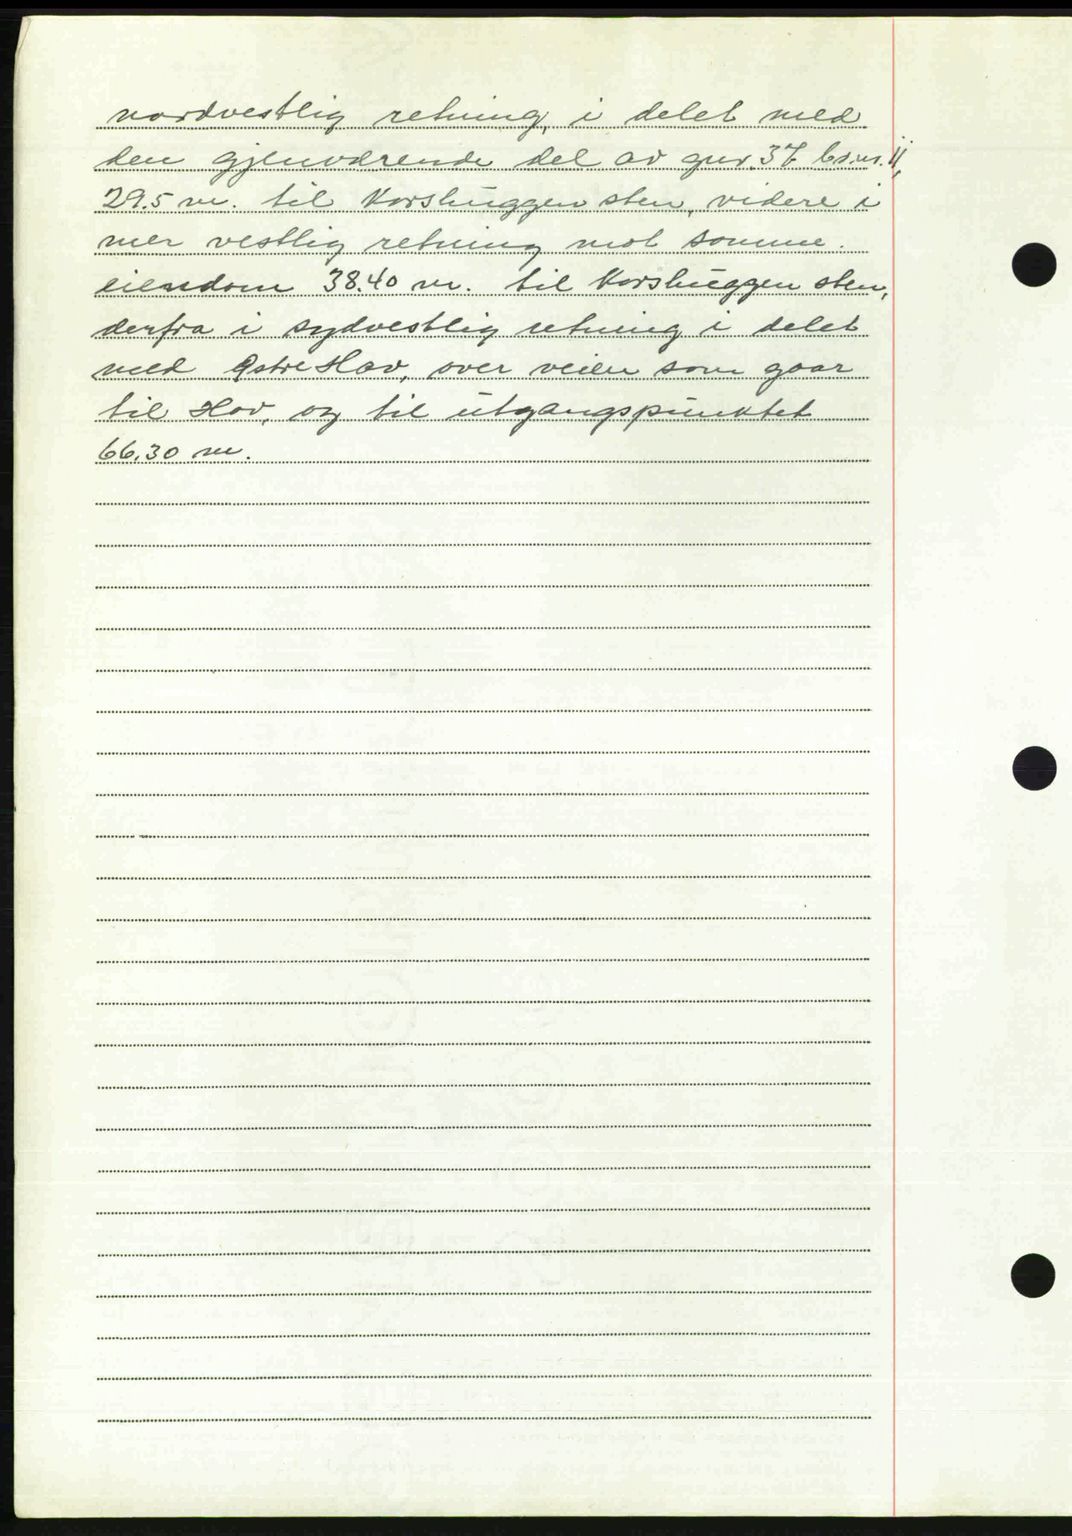 nordvestlig retning, i delet med
den gjenværende del av gnr. 37 br.nr. 11,
29.5 m. til korshuggen sten, videre i
mer vestlig retning mot samme
eiendom 38.40 m. til korshuggen sten,
derfra i sydvestlig retning i delet
med Østre Hov, over veien som gaar
til Hov, og til utgangspunktet
66.30 m.